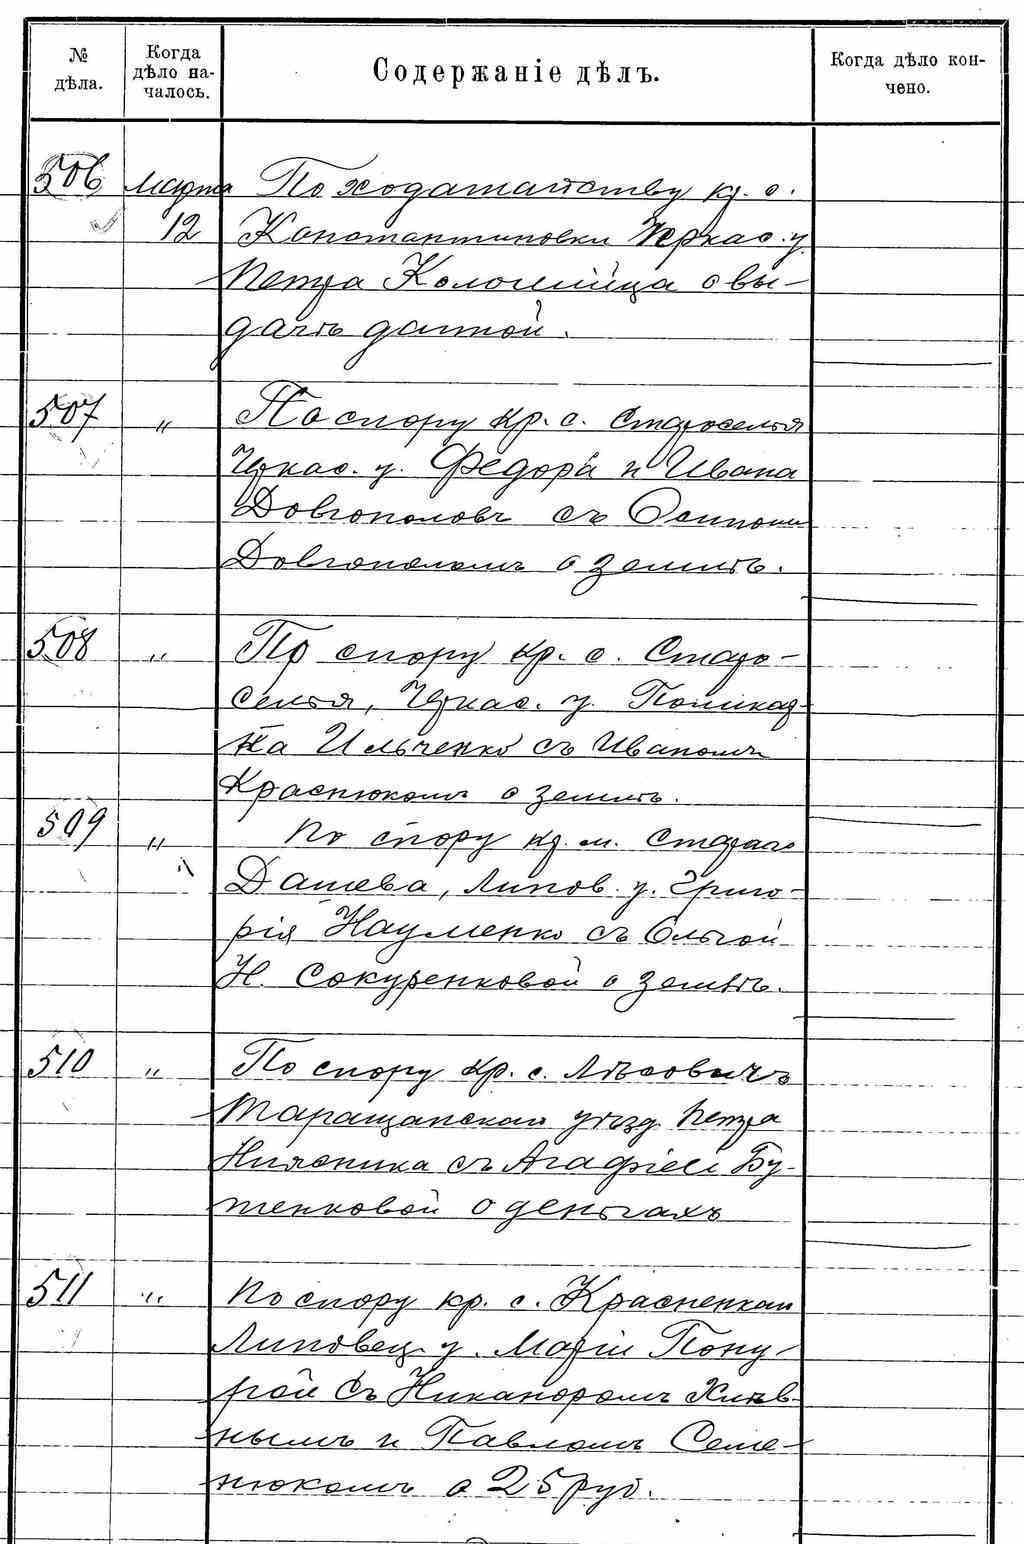 № дѣла.
Когда дѣло на-
чалось.
Содержаніе дѣлъ.
Когда дѣло кон-
чено.
506 Марта По ходатайству кр. с.
12 Константиновки Черкас. у.
Петра Коломійца о вы-
дачѣ данной.
507 " По спору кр. с. Староселья
Черкас. у. Федора и Ивана
Довгополовъ съ Осипомъ
Довгополомъ о землѣ.
508 " По спору кр. с. Старо-
селья, Черкас. у.
Ильченко съ Иваномъ
Краснюкомъ о землѣ.
509 " По спору кр. м. Стараго
Дашева, Липов. у. Григо-
рія Науменко съ Ольгой
Н. Сокуренковой о землѣ.
510 " По спору кр. с. Лѣсовичъ
Таращанскаго уѣзд. Петра
съ Агафіей Бу-
тенковой о деньгахъ
511 " По спору кр. с. Красненькаго
Липовец. у. Маріи Пону-
рой съ Никаноромъ Хлѣв-
нымъ и Павломъ Семе-
нюкомъ о 25 руб.